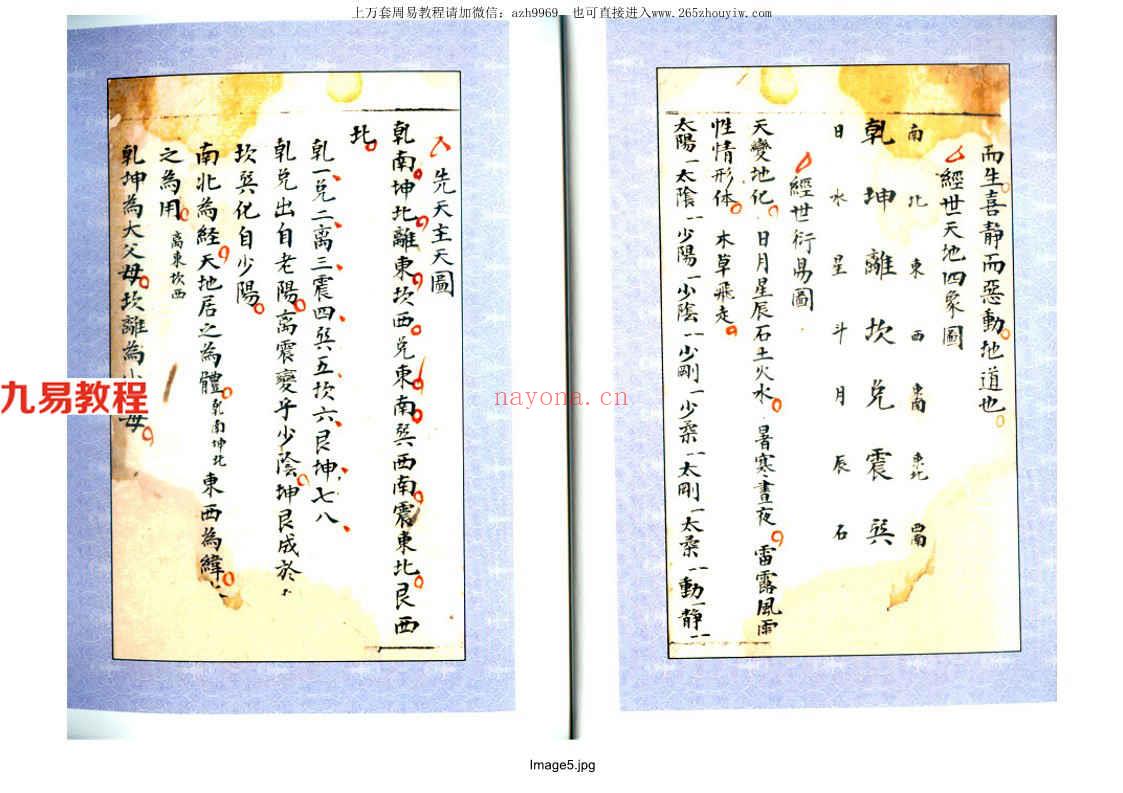 上万套周易教程请加微信：azh9969 也可直接进入www.265zhouyiw.com
而生喜静而惡動地道也
經世天地四象圖
南 北 東 西 東南 東北 西南
乾 坤 離 坎 兌 震 巽
日 水 星 斗 月 辰 石
經世衍易圖
天變地化 日月星辰石土火水 暑寒晝夜 雷露風雨
性情形体 木草飛走
太陽一太陰一少陽一少陰一少剛一少柔一太剛一太柔一動一静一
先天主天圖
乾南坤北離東坎西兌東南巽西南震東北艮西
北
乾一兌二离三震四巽五坎六艮坤七八
乾兌出自老陽离震變乎少陰坤艮成於
坎巽化自少陽
南北為経天地居之為體乾南坤北東西為緯
之為用离東坎西
乾坤為大父母坎離為小 母
九易教程
nayona.cn
Image5.jpg